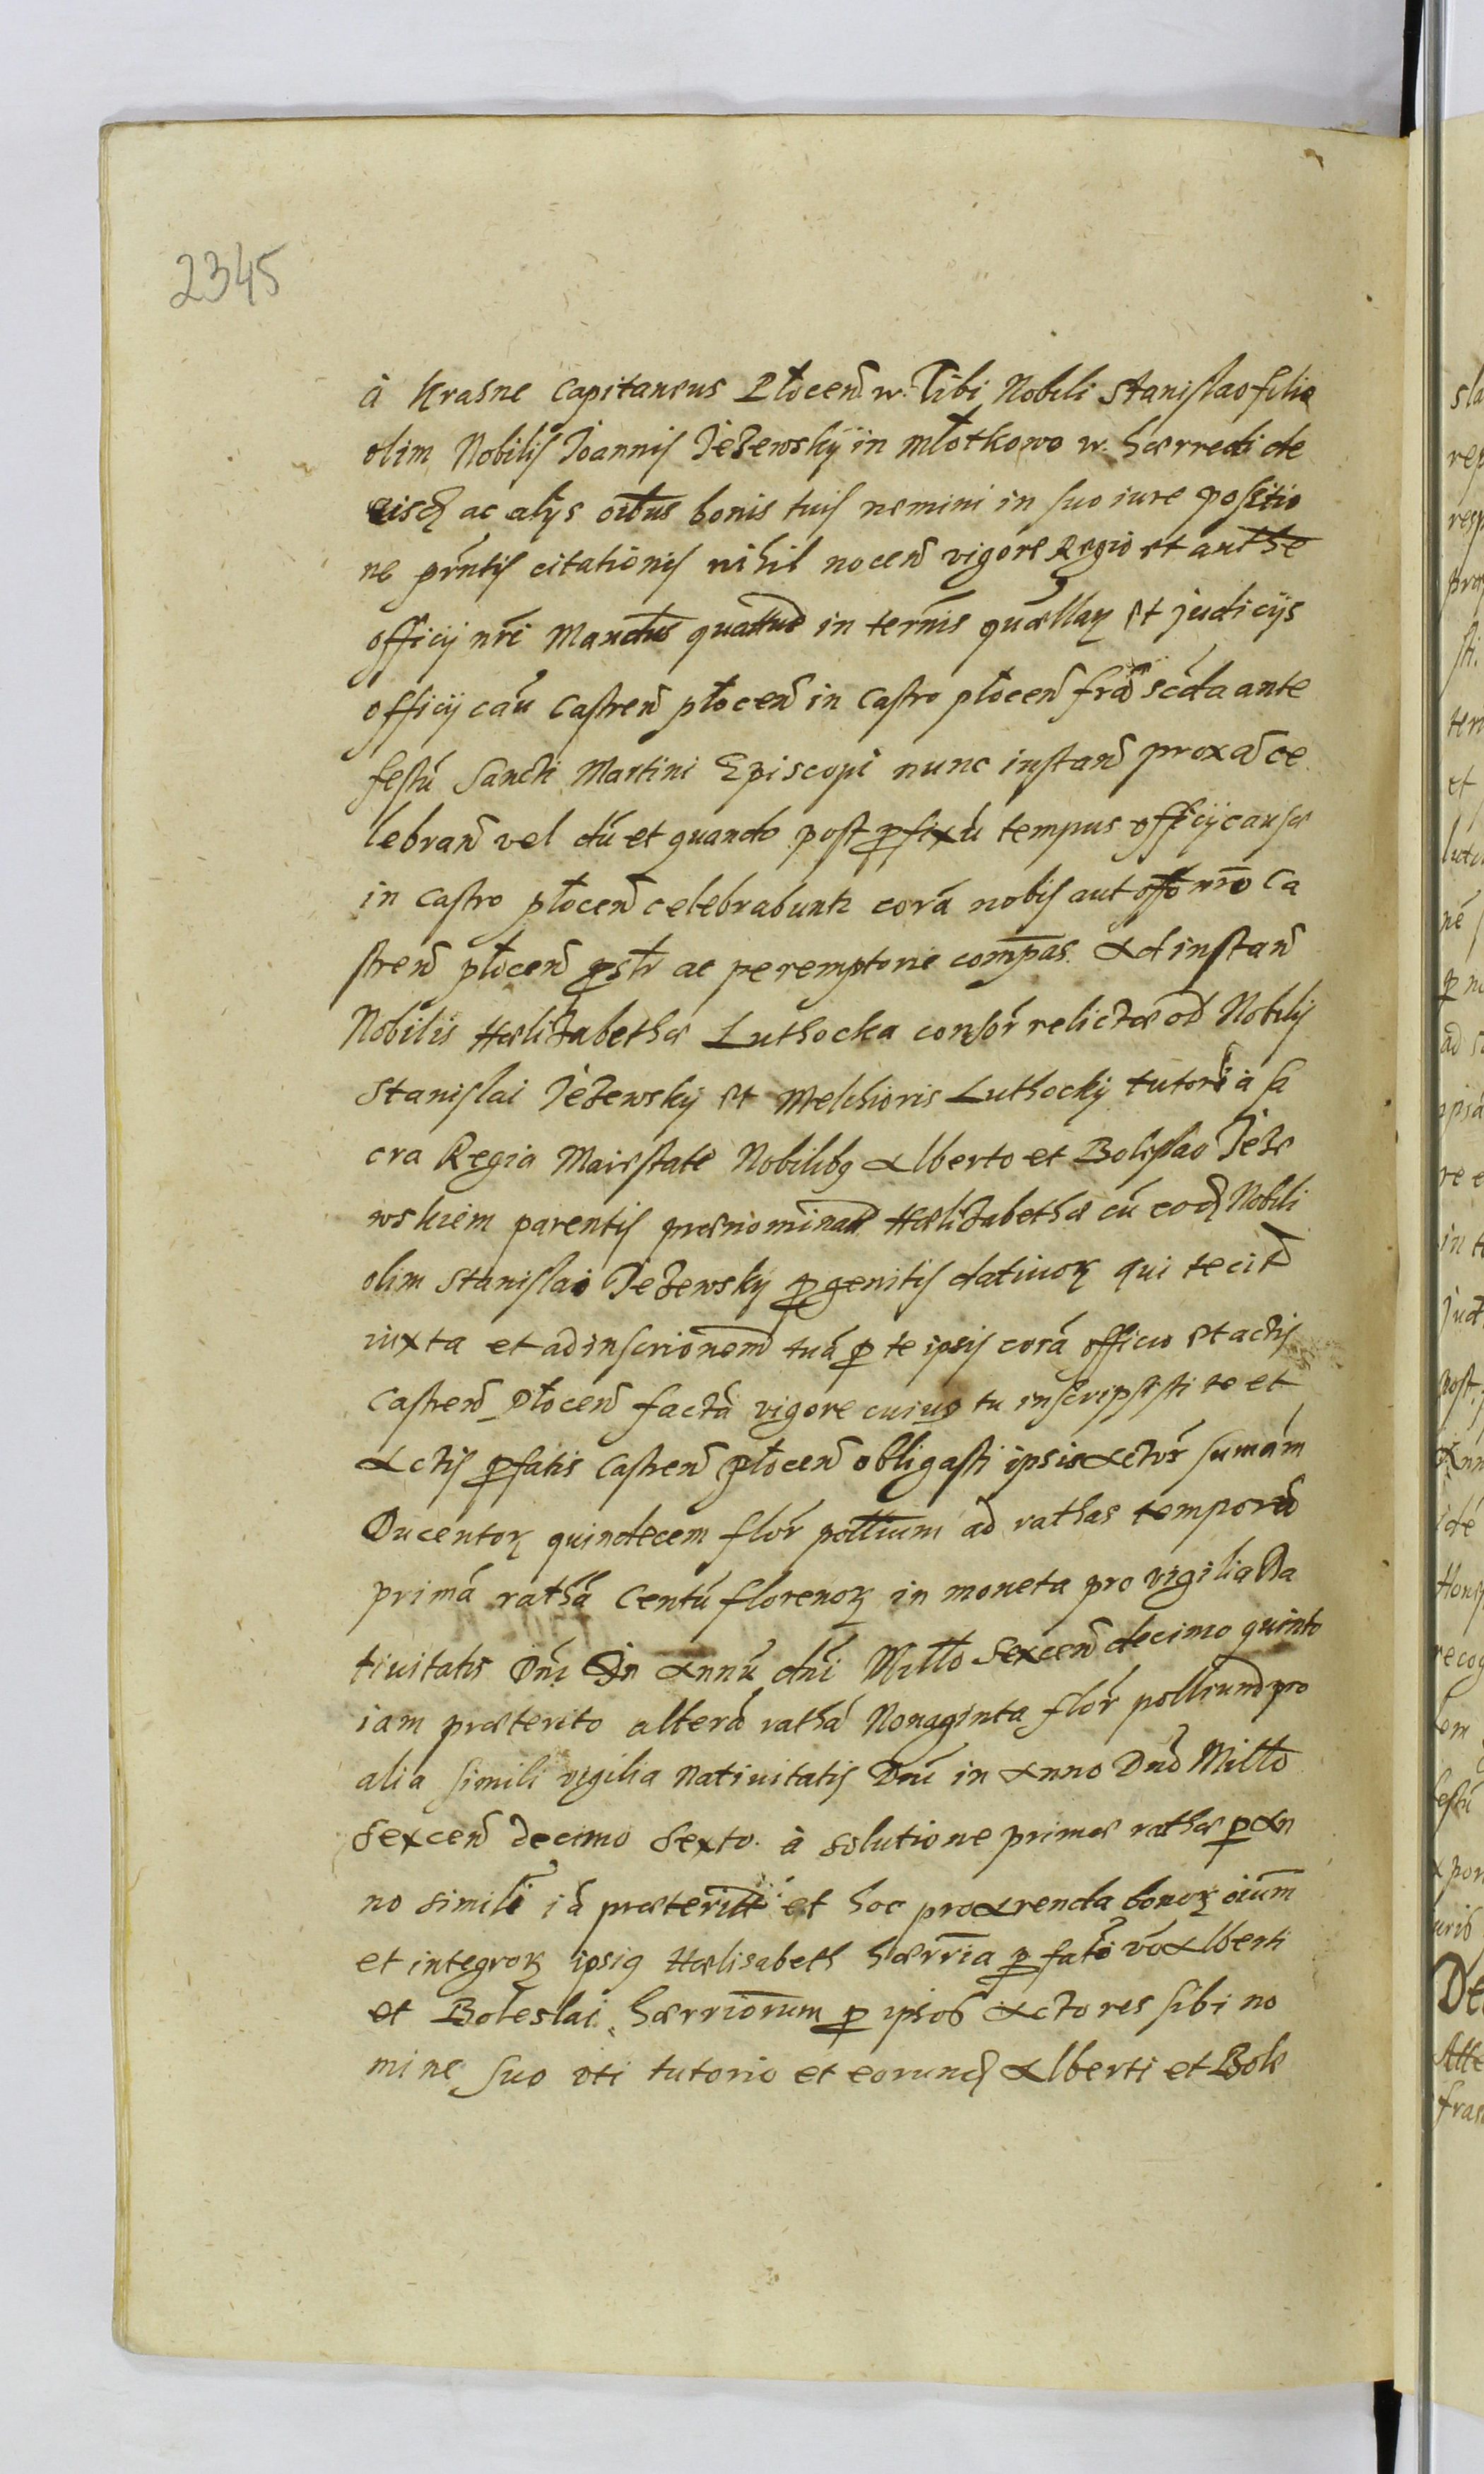 2345
à Krasne Capitaneus Płocen̄ w. Tibi Nobili Stanislao filio
olim Nobilis Joannis Jeżewskÿ in Młotkowo w. hærredi de
eisdꝫ ac alijs oībus bonis tuis nemini in suo iure positio
ne pn̄tis citationis nihil nocen̄ vigore Regio et authe
officij nr̄i Mandus quattus in termis quællaꝝ et judicijs
officij cāu Castren̄ płocen̄ in Castro płocen̄ fra scda ante
festū Sancti Martini Episcopi nunc instan̄ proxa ce
lebran̄ vel dū et quando post p̱fixū tempus officij causæ
in Castro płocen̄ celebrabuntr corā nobis aut offo nr̄o Ca
stren̄ płocen̄ p̱slr ac peremptorie compas. Ad instan̄
Nobilis Hælizabethæ Luthocka consor relictæ od Nobilis
Stanislai Jeżewskÿ et Melchioris Luthockÿ tutorū à Sa
cra Regia Maiestate Nobilibꝫ Alberto et Boleslao Jeże
wskiem parentis prænominatæ Hælizabethæ cū eodꝫ Nobili
olim Stanislao Jeżewskÿ p̱genitis datiuoꝝ qui te cit̄
iuxta et ad inscrionem tuā p̱ te ipsis corā officio et actis
Castren̄ Płocen̄ factā vigore cuius tu inscripsisti te et
Actis p̱fatis Castren̄ płocen̄ obligasti ipsis Actor sumam
Ducentoꝝ quindecem flor pollium ad rathas temporū
primā rathā Centū florenoꝝ in moneta pro vigilia Na
tiuitatis Dn̄i In Annū dn̄i Millo Sexcen̄ decimo quinto
iam præterito alterā rathā Nonaginta flor pollium pro
alia simili vigilia Natiuitatis Dn̄i in Anno Dn̄i Millo
Sexcen̄ decimo Sexto. à solutione primæ rathæ p̱ An
no simili iā præteritt et hoc pro Arenda bonoꝝ oium
et integroꝝ ipsiꝰ Hælisabeth hærria p̱fato vo Alberti
et Boleslai hærriorum p̱ ipsos Actores sibi no
mine suo vti tutorio et eorundꝫ Alberti et Bole